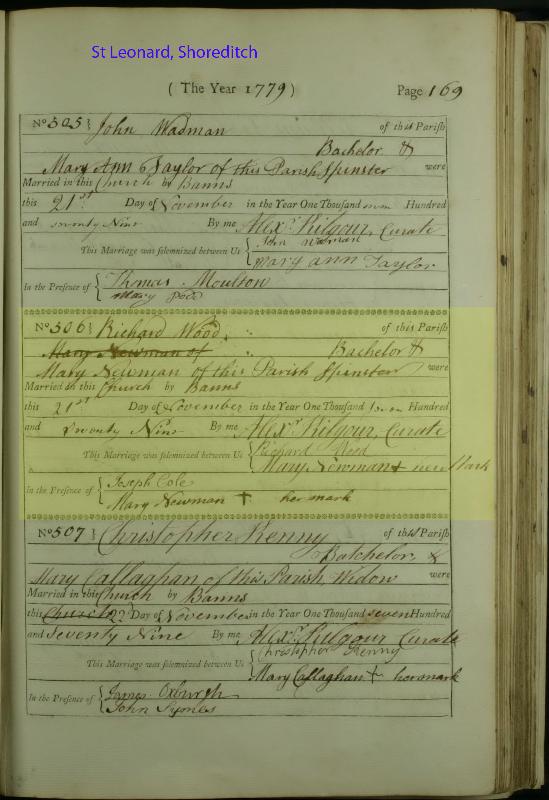 St Leonard, Shoreditch
( The Year 1779 ) Page 169
No 505 John Wadman of this Parish
Bachelor &
Mary Ann Taylor of this Parish Spinster were
Married in this Church by Banns
this 21st Day of November in the Year One Thousand seven Hundred
and seventy Nine By me Alexr Kilgour, Curate
This Marriage was solemnized between Us John Wadman
Mary ann Taylor
In the Presence of Thomas Moulson
Mary
No 506 Richard Wood of this Parish
Mary Newman of Bachelor &
Mary Newman of this Parish Spinster were
Married in this Church by Banns
this 21st Day of November in the Year One Thousand seven Hundred
and Seventy Nine By me Alexr Kilgour, Curate
This Marriage was solemnized between Us Richard
Mary Newman + her Mark
In the Presence of Joseph Cole
Mary Newman + her mark
No 507 Christopher Kenny of this Parish
Batchelor &
Mary Callaghan of this Parish Widow were
Married in this Church by Banns
this Church 22 Day of November in the Year One Thousand seven Hundred
and Seventy Nine By me Alexr Kilgour Curate
This Marriage was solemnized between Us Christopher Kenny
Mary Callaghan + her mark
In the Presence of James Oxburgh
John Symes